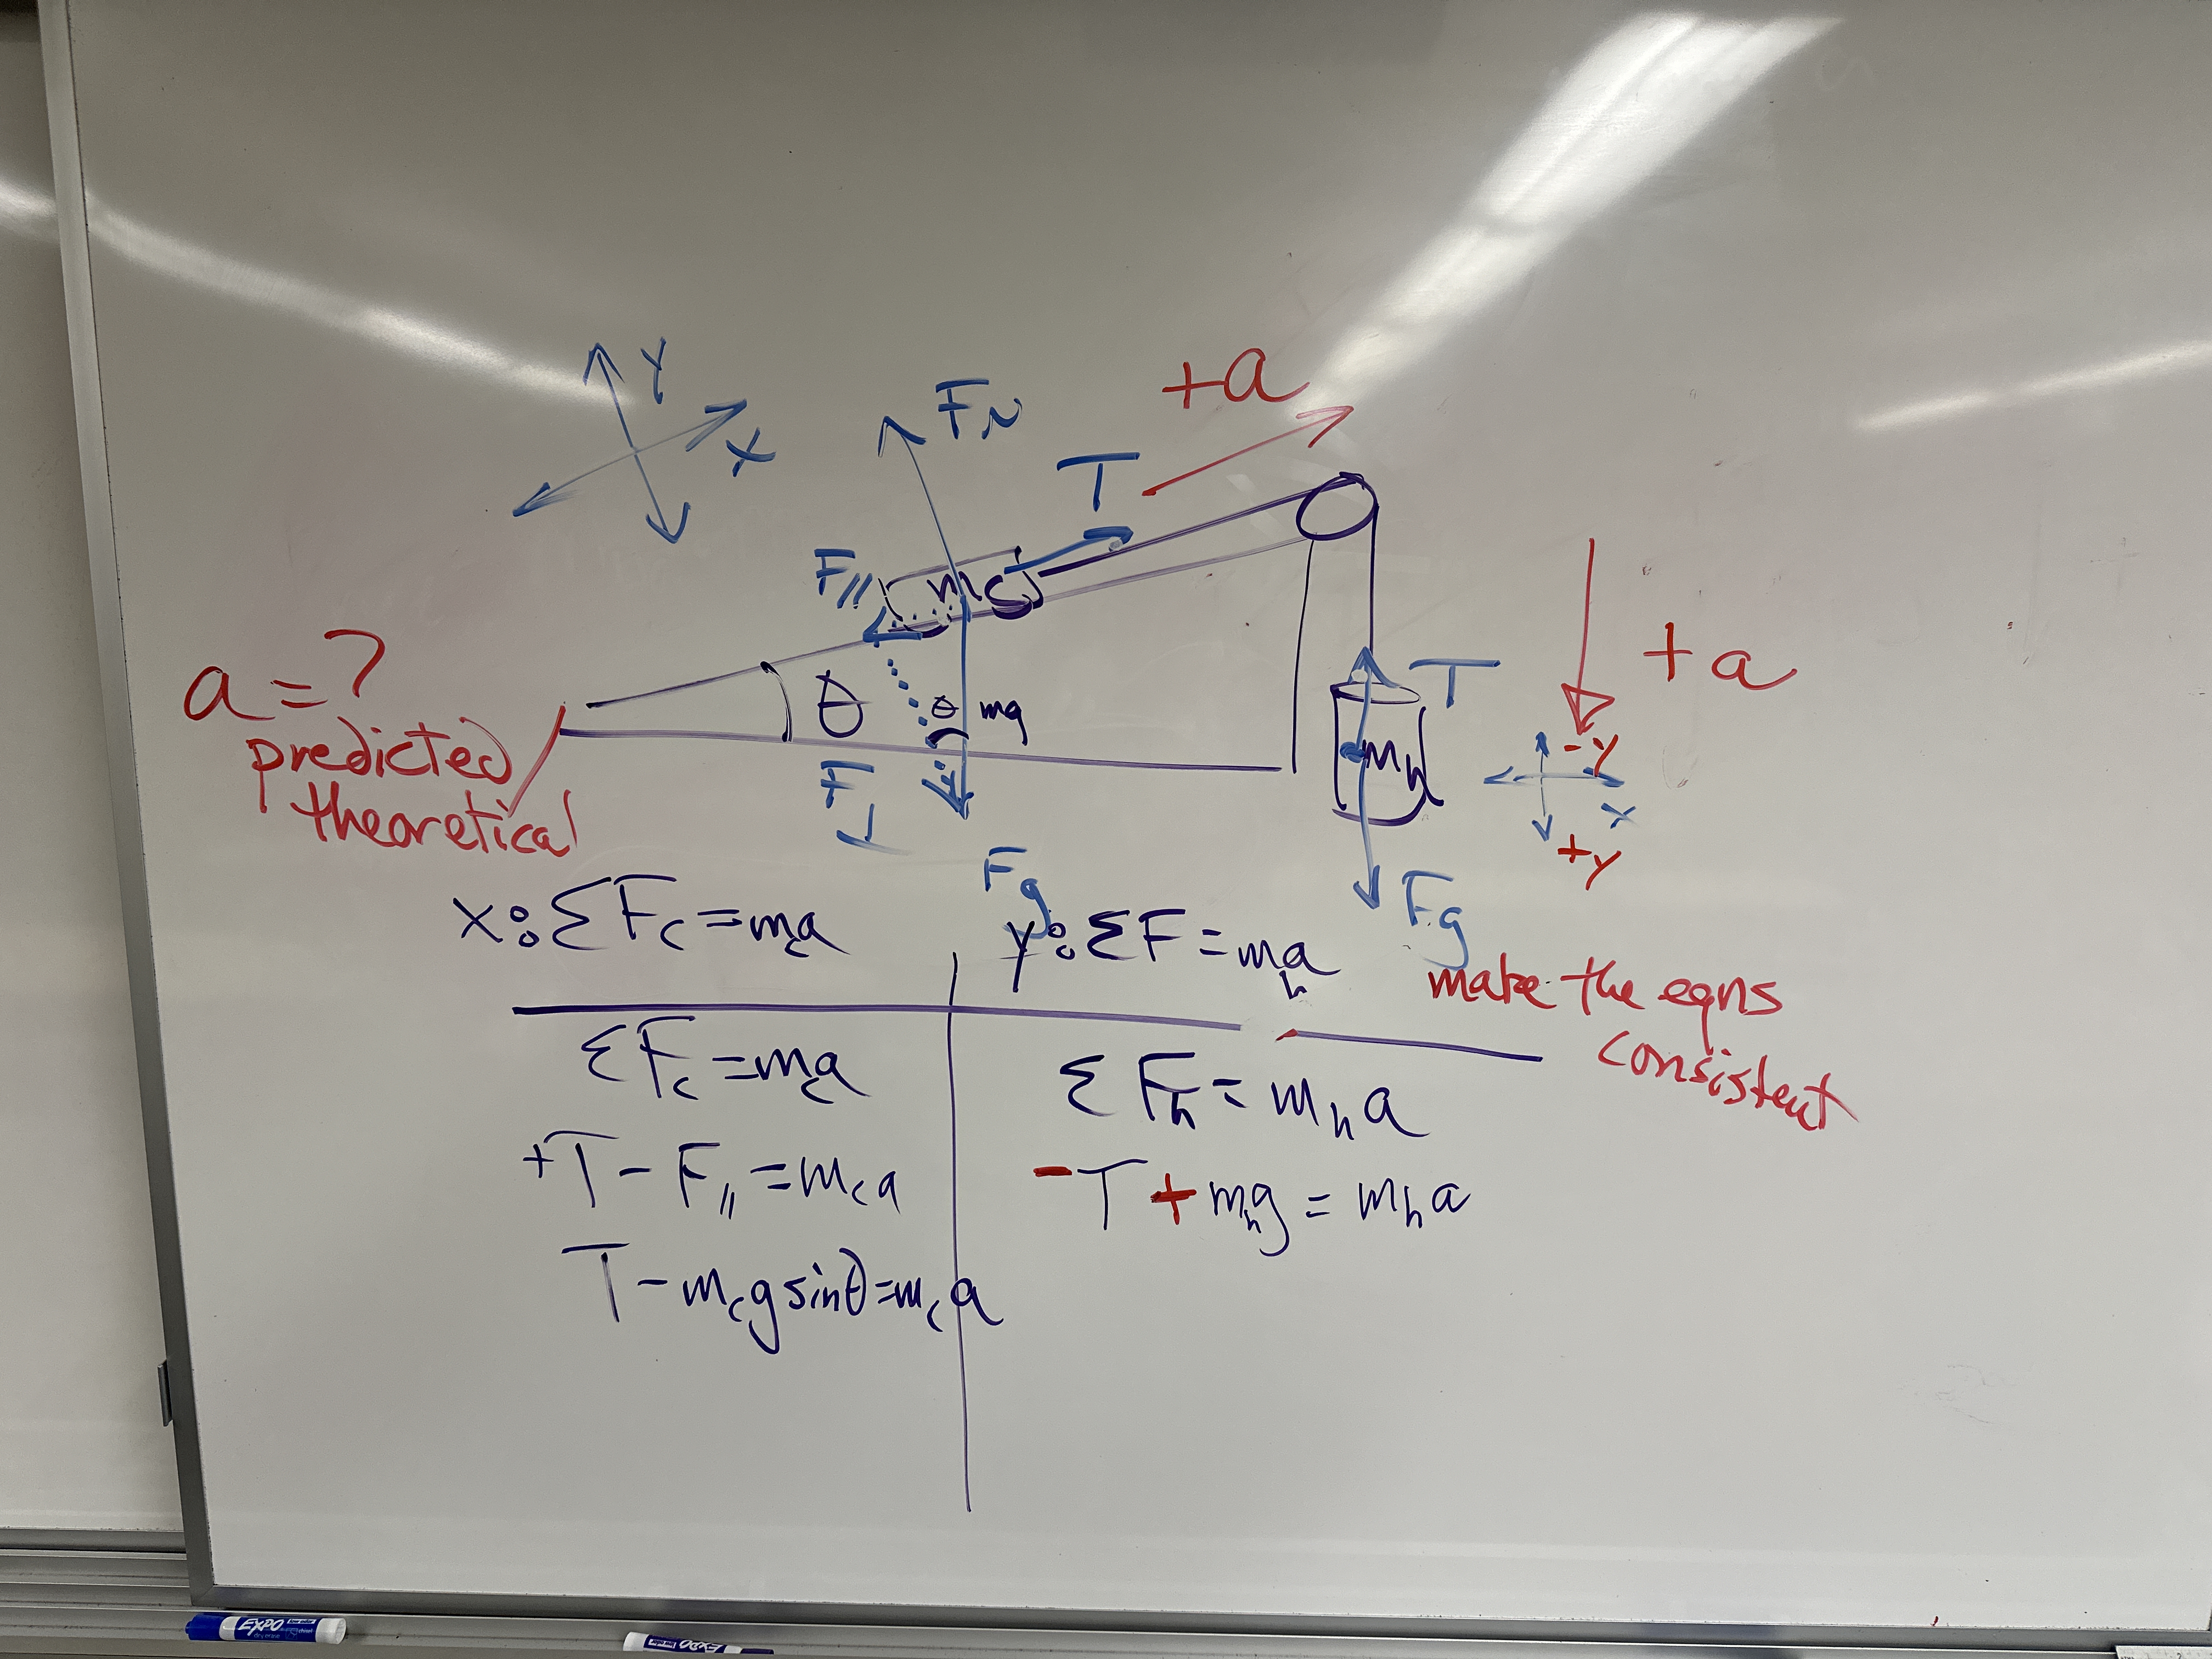 +a
Y
X
FN
T
F//
mc
a=?
predicted
theoretical
θ
θ
mg
F⊥
Fg
T
mh
+a
-Y
X
+y
Fg
x: ΣFc = mca
y: ΣF = mha
make the eqns
consistent
ΣFc = mca
ΣFh = mha
+T - F// = mca
-T + mhg = mha
T - mcg sinθ = mca
EXPO
EXPO